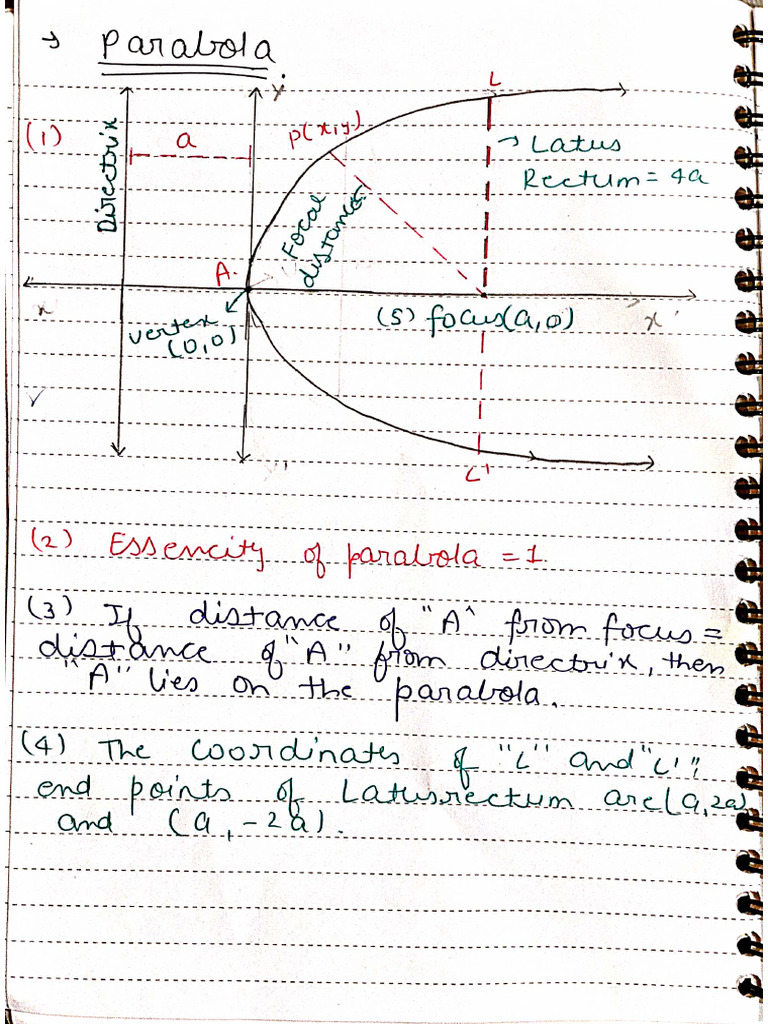 → Parabola
y
L
(1)
a
P(x,y)
Directrix
→ Latus
Rectum = 4a
Focal
distance
A.
x
vertex
(0,0)
(S) focus(a,0)
x'
y'
L'
(2) Essencity of parabola = 1.
(3) If distance of "A" from focus =
distance of "A" from directrix, then
"A" lies on the parabola.
(4) The coordinates of "L" and "L'",
end points of Latusrectum are (a,2a)
and (a,-2a).